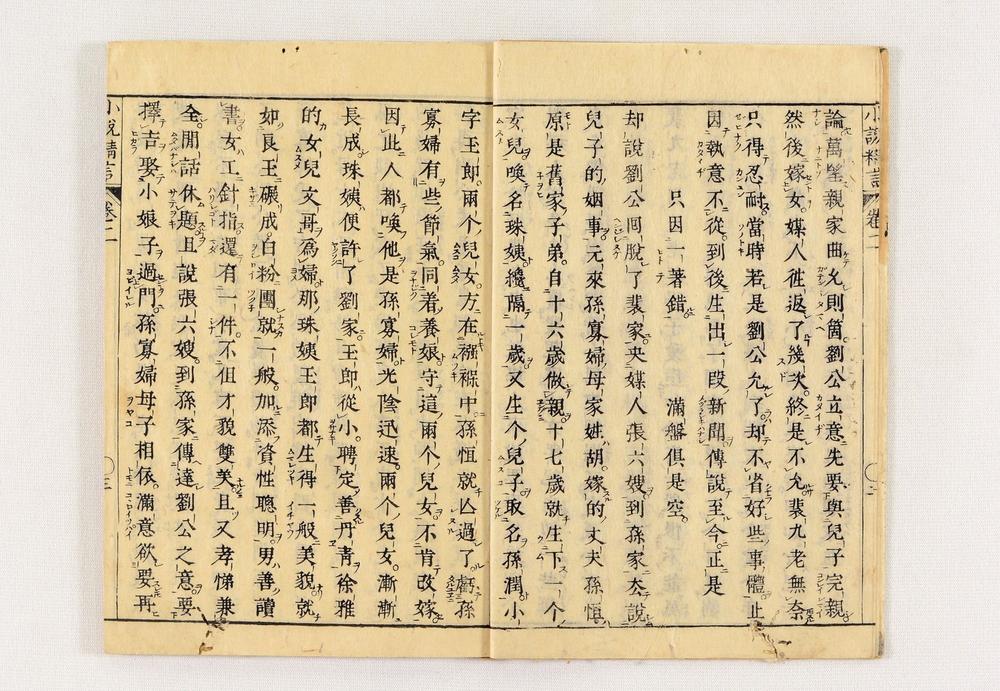 小說精言 卷二
論。萬望親家曲允則箇。劉公立意先要與兒子完親
然後嫁女。媒人徃返了幾次。終是不允裴九老無奈
只得忍耐當時若是劉公允了。却不省好些事體。止
因執意不從。到後生出一段新聞。傳說至今。正是
只因一著錯。 滿盤俱是空。
却說劉公囘脫了裴家。央媒人張六嫂到孫家去說
兒子的姻事。元來孫寡婦母家姓胡。嫁的丈夫孫恒
原是舊家子弟。自十六歲做親。十七歲就生下一个
女兒喚名珠姨。纔隔一歲。又生个兒子取名孫潤。小
字玉郎。兩个兒女。方在襁褓中。孫恒就亾過了。虧孫
寡婦有些節氣。同着養娘。守這兩个兒女。不肯改嫁
因此人都喚他是孫寡婦。光陰迅速。兩个兒女。漸漸
長成。珠姨便許了劉家。玉郎從小。聘定善丹青徐雅
的女兒文哥爲婦。那珠姨玉郎都生得一般美貌。就
如良玉碾成。白粉團就一般。加添資性聰明。男善讀
書。女工針指。還有一件。不但才貌雙美。且又孝悌兼
全。閒話休題。且說張六嫂。到孫家傳達劉公之意。要
擇吉娶小娘子過門。孫寡婦母子相依。滿意欲要再
小說精言 卷二